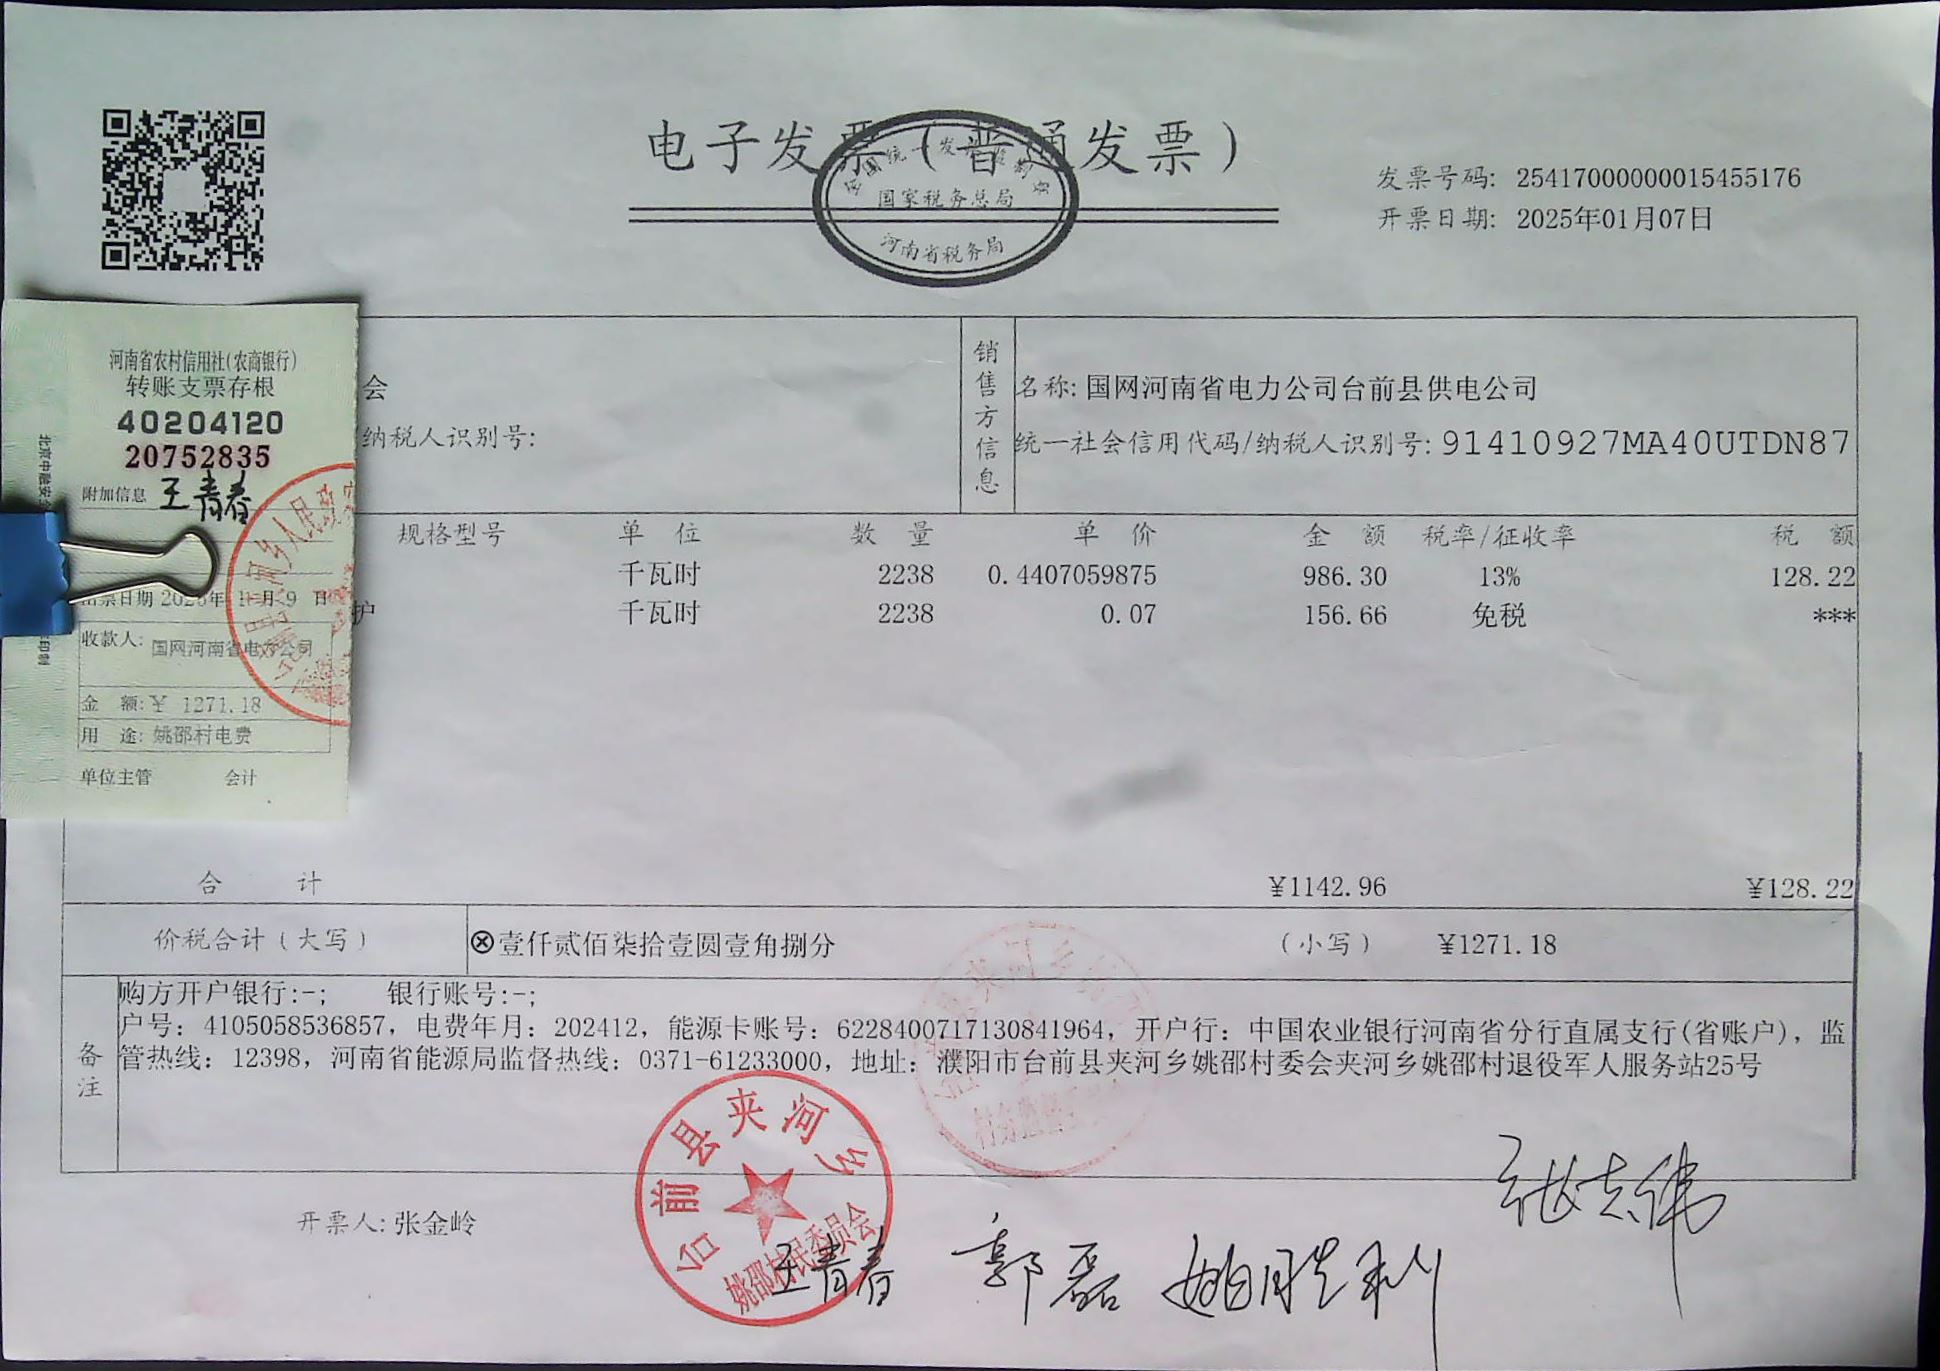 电子发票（普通发票）
全国统一发票监制章
国家税务总局
河南省税务局
发票号码: 25417000000015455176
开票日期: 2025年01月07日
河南省农村信用社(农商银行)
转账支票存根
40204120
20752835
附加信息 王青春
收款人: 国网河南省电力公司
金 额: ¥ 1271.18
用 途: 姚邵村电费
单位主管 会计
会
纳税人识别号:
销售方信息
名称: 国网河南省电力公司台前县供电公司
统一社会信用代码/纳税人识别号: 91410927MA40UTDN87
规格型号 单 位 数 量 单 价 金 额 税率/征收率 税 额
千瓦时 2238 0.4407059875 986.30 13% 128.22
护 千瓦时 2238 0.07 156.66 免税 ***
合 计 ¥1142.96 ¥128.22
价税合计（大写） ⊗壹仟贰佰柒拾壹圆壹角捌分 （小写） ¥1271.18
备注
购方开户银行:-; 银行账号:-;
户号: 4105058536857, 电费年月: 202412, 能源卡账号: 6228400717130841964, 开户行: 中国农业银行河南省分行直属支行(省账户), 监
管热线: 12398, 河南省能源局监督热线: 0371-61233000, 地址: 濮阳市台前县夹河乡姚邵村委会夹河乡姚邵村退役军人服务站25号
开票人: 张金岭
台前县夹河乡
姚邵村民委员会
王青春 郭磊 姚胜利 张志伟